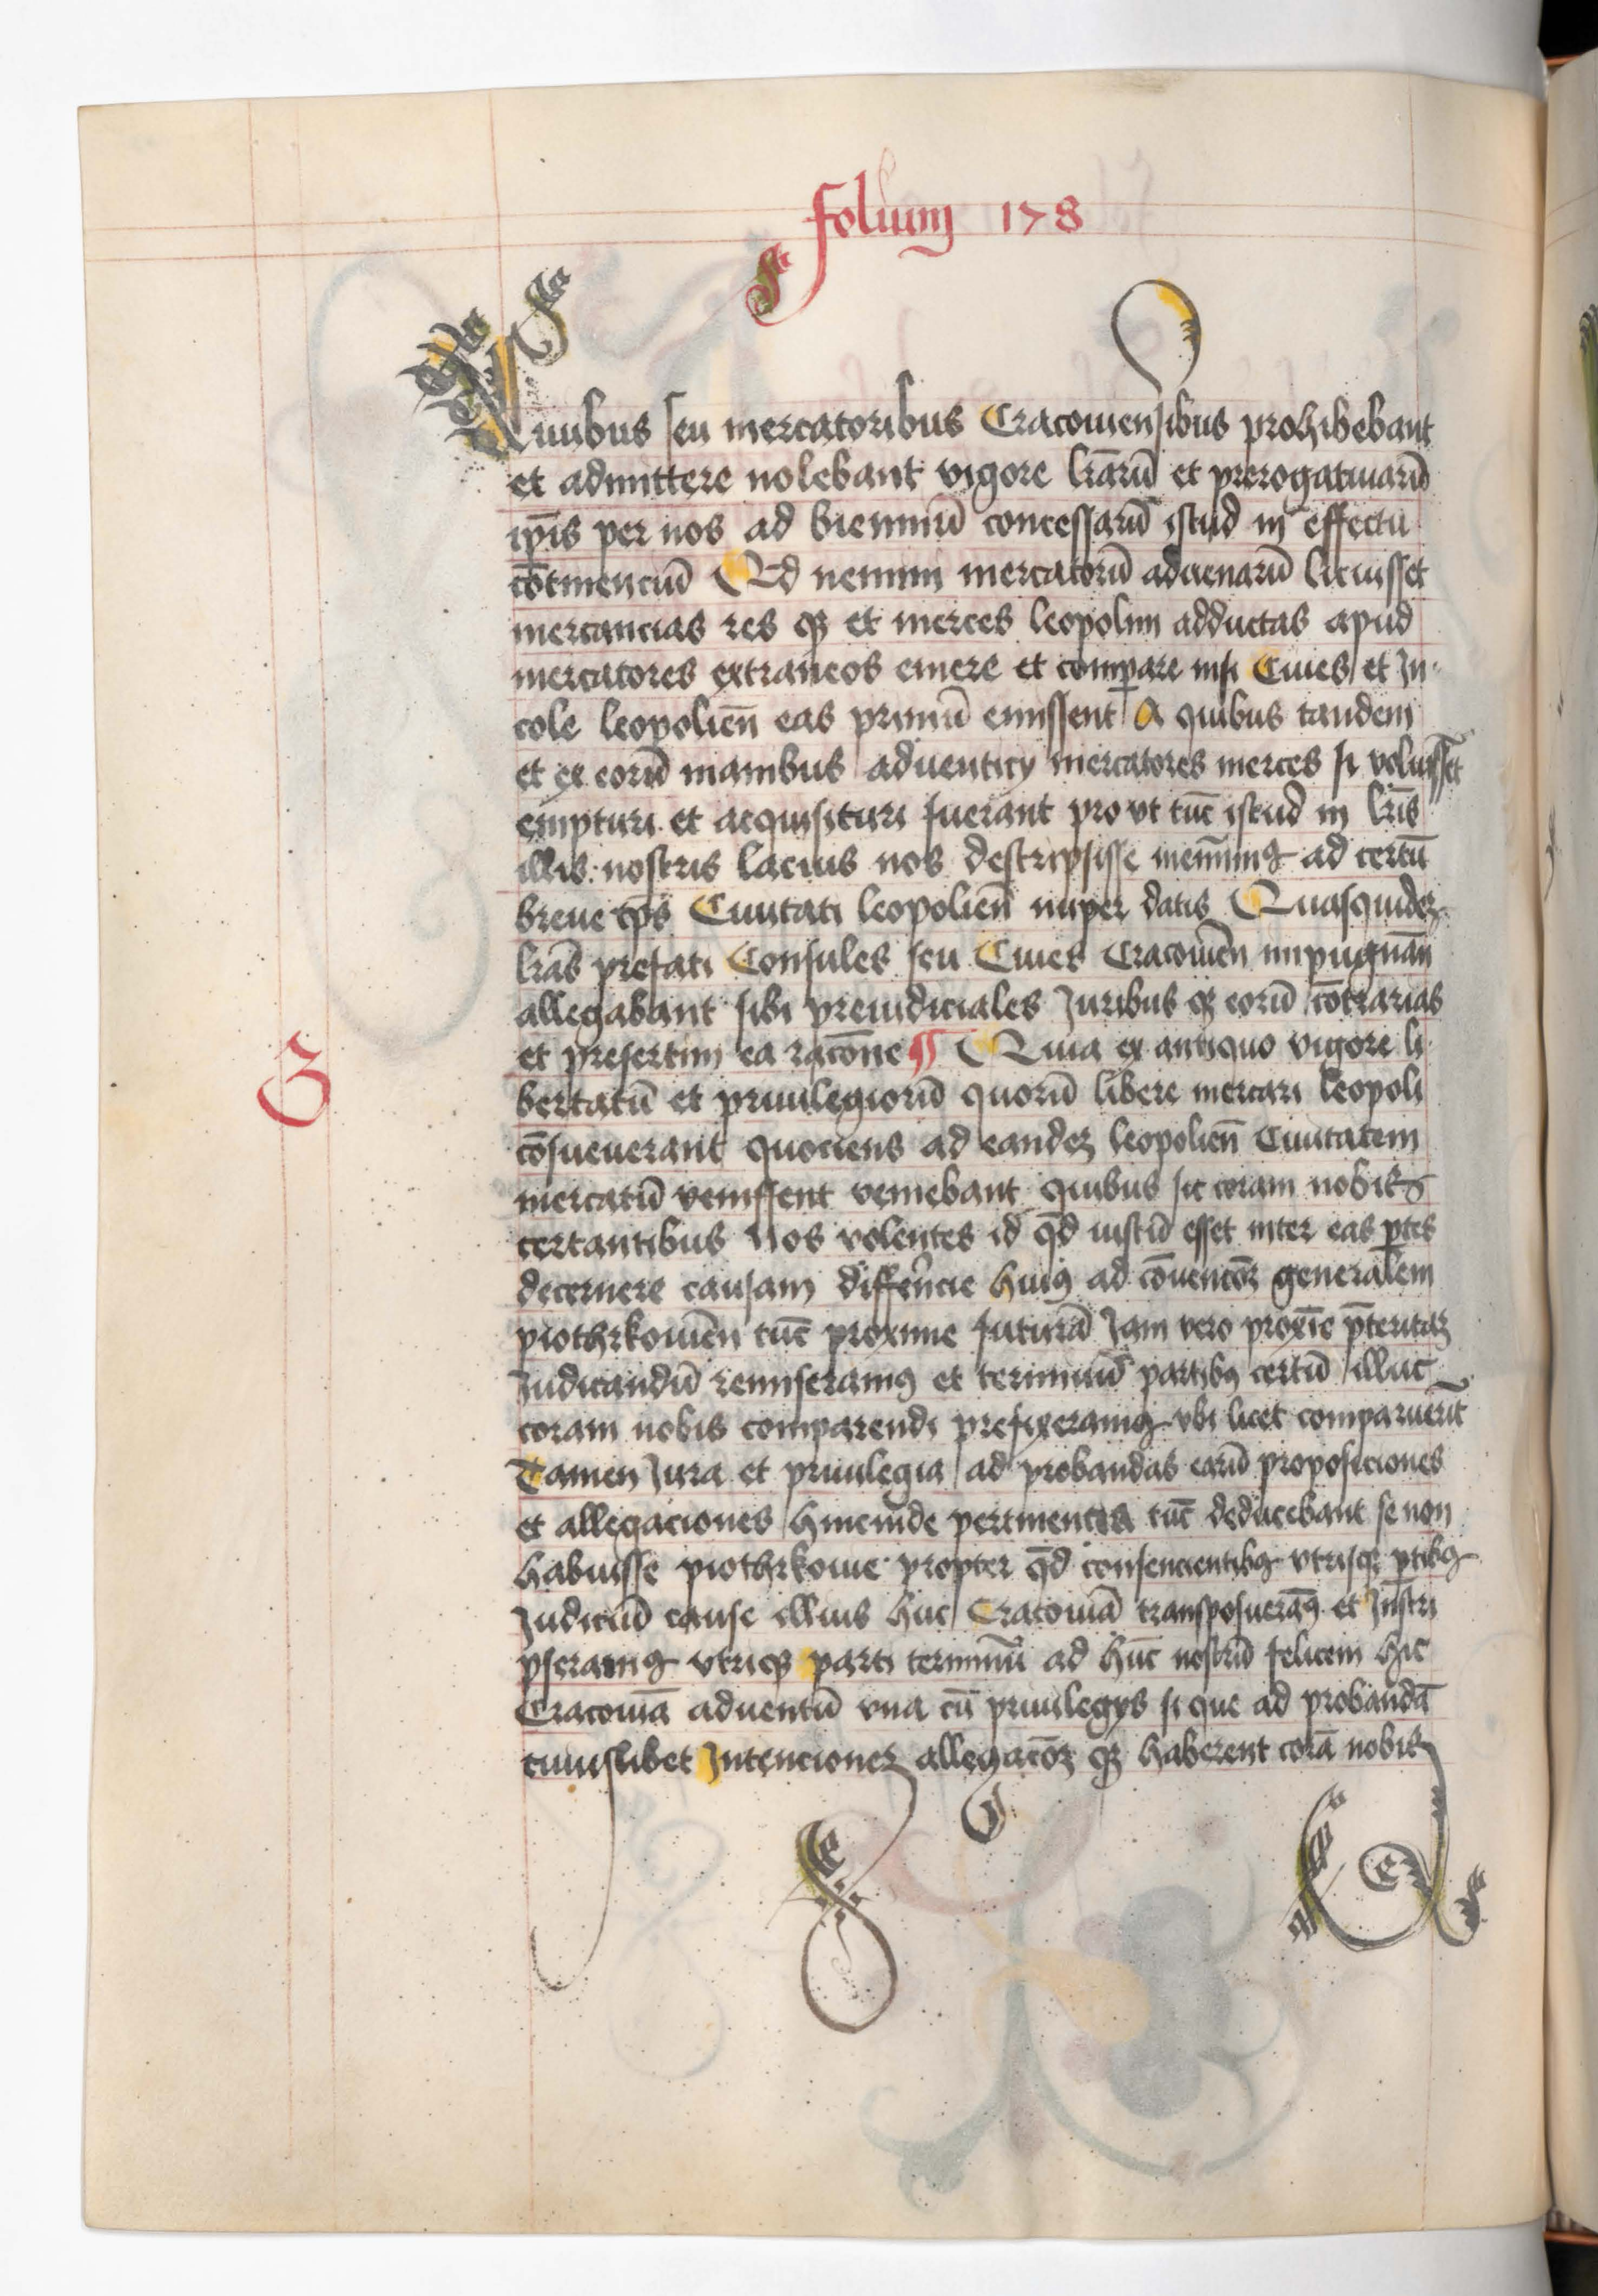 folium 178
Ciuibus seu mercatoribus Cracouiensibus prohibebant
et admittere nolebant vigore lr̄arū et prerogatiuarū
ip̄is per nos ad bienniū concessarū istud in effectu
cōtinenciū Qd nemini mercatorū aduenarū licuisset
mercancias res qꝫ et merces leopolim adductas apud
mercatores extraneos emere et comꝑare nisi Ciues et In-
cole leopolien̄ eas primū emissent A quibus tandem
et ex eorū manibus aduenticij mercatores merces si voluissēt
empturi et acquisituri fuerant pro vt tūc istud in lr̄is
illis nostris lacius nos descripsisse meminimꝰ ad certū
breue tp̄s Ciuitati leopolien̄ nuper datis Quasquideꝫ
lr̄as prefati Consules seu Ciues Cracouien̄ impugnan̄
allegabant sibi preiudiciales Juribus qꝫ eorū cōtrarias
et presertim ea racōne ¶ Quia ex antiquo vigore li-
G
bertatū et priuilegiorū quorū libere mercari leopoli
cōsueuerant quociens ad eandeꝫ leopolien̄ Ciuitatem
mercatū venissent veniebant quibus sic coram nobis
certantibus Nos volentes id qd̄ iustū esset inter eas ꝑtes
decernere causam differ̄ncie huiꝰ ad cōuencōꝫ generalem
piothrkouien̄ tūc proxime futurā Jam vero prox̄ie p̄teritaꝫ
Judicandū remiseramꝰ et terminū partibꝰ certū illuc
coram nobis comparendi prefixeramꝰ vbi licet comparuerūt
Tamen Jura et priuilegia ad probandas earū proposiciones
et allegaciones hincinde pertinentia tūc deducebant se non
habuisse piothrkouie propter qd̄ consencientibꝰ vtrisqꝫ ꝑtibꝰ
Judiciū cause illius huc Cracouiā transposueramꝰ et Inscri
pseramꝰ vtriqꝫ parti terminū ad hūc nostrū felicem hic
Cracouiā aduentū vna cū priuilegijs si que ad probandā
cuiuslibet Intencioneꝫ allegacōꝫ qꝫ haberent corā nobis